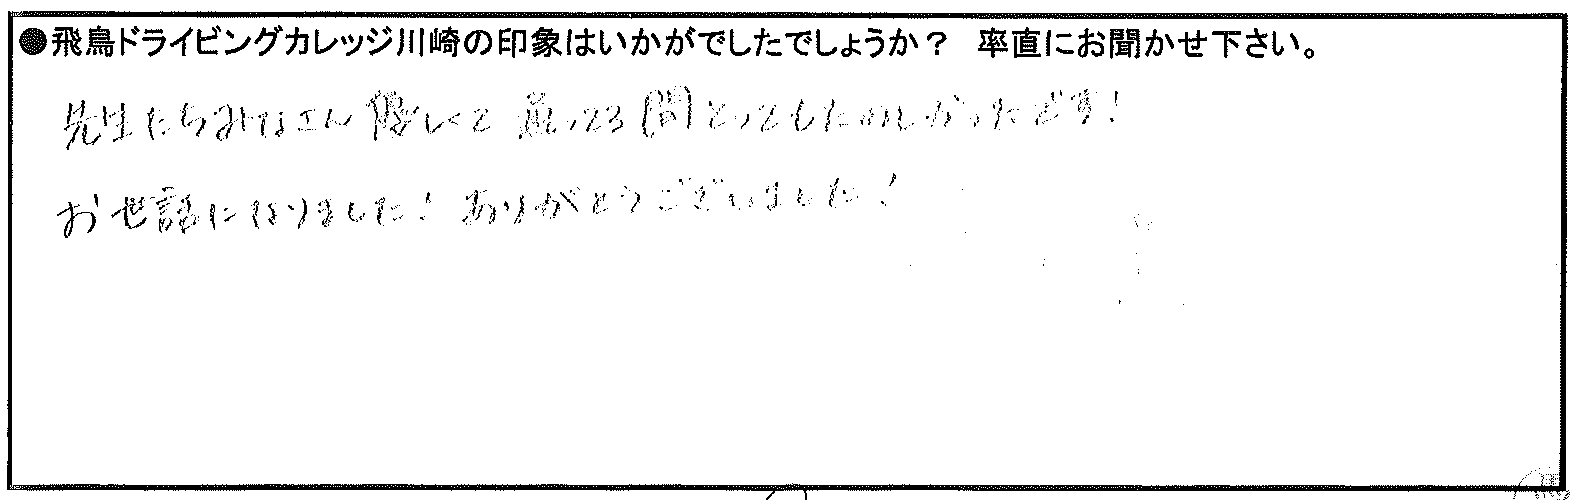 ●飛鳥ドライビングカレッジ川崎の印象はいかがでしたでしょうか？ 率直にお聞かせ下さい。
先生たちみなさん優しくて通ってる間とってもたのしかったです！
お世話になりました！ありがとうございました！